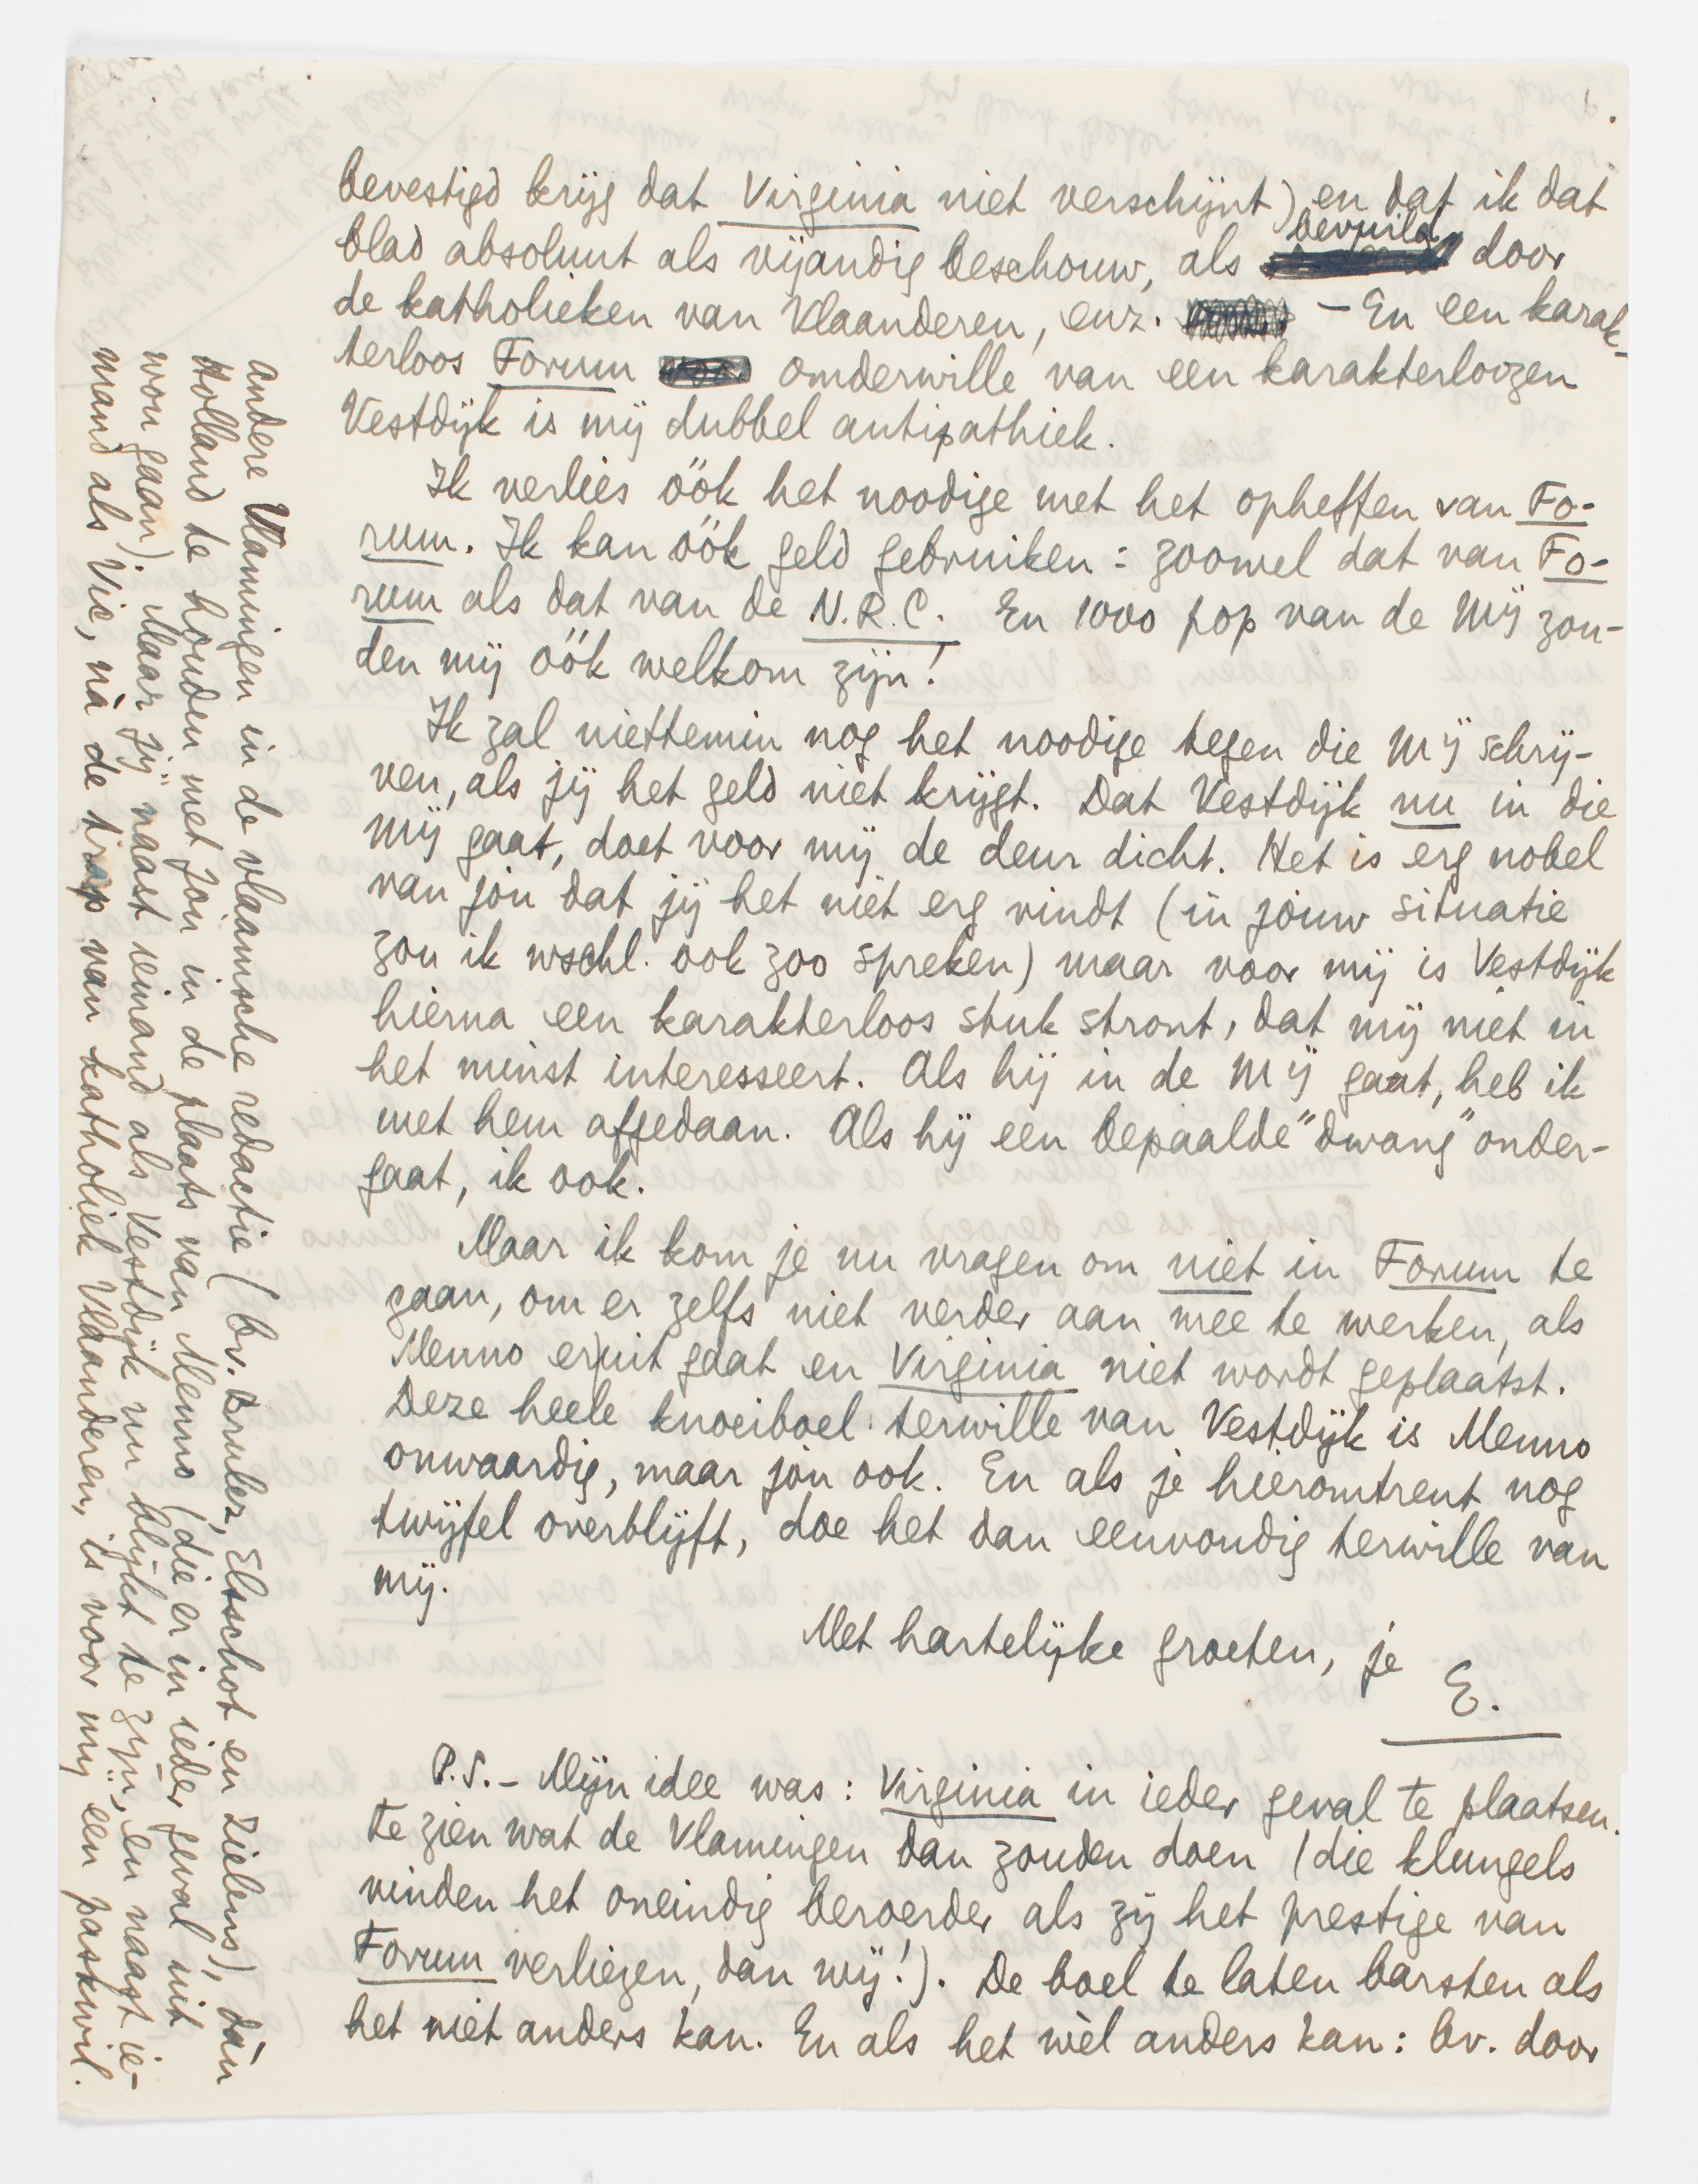 bevestigd krijg dat Virginia niet verschijnt) en dat ik dat
blad absoluut als vijandig beschouw, als bevuild door
de katholieken van Vlaanderen, enz. – En een karak-
terloos Forum omderwille van een karakterloozen
Vestdijk is mij dubbel antipathiek.
Ik verlies óók het noodige met het opheffen van Fo-
rum. Ik kan óók geld gebruiken: zoowel dat van Fo-
rum als dat van de N.R.C. En 1000 pop van de Mij zou-
den mij óók welkom zijn!
Ik zal niettemin nog het noodige tegen die Mij schrij-
ven, als jij het geld niet krijgt. Dat Vestdijk nu in die
Mij gaat, doet voor mij de deur dicht. Het is erg nobel
van jou dat jij het niet erg vindt (in jouw situatie
zou ik wschl. ook zoo spreken) maar voor mij is Vestdijk
hierna een karakterloos stuk stront, dat mij niet in
het minst interesseert. Als hij in de Mij gaat, heb ik
met hem afgedaan. Als hij een bepaalde "dwang" onder-
gaat, ik ook.
Maar ik kom je nu vragen om niet in Forum te
gaan, om er zelfs niet verder aan mee te werken, als
Menno eruit gaat en Virginia niet wordt geplaatst.
Deze heele knoeiboel terwille van Vestdijk is Menno
onwaardig, maar jou ook. En als je hieromtrent nog
twijfel overblijft, doe het dan eenvoudig terwille van
mij.
Met hartelijke groeten, je
E.
P.S. – Mijn idee was: Virginia in ieder geval te plaatsen.
Te zien wat de Vlamingen dan zouden doen (die klungels
vinden het oneindig beroerder als zij het prestige van
Forum verliezen, dan wij!). De boel te laten barsten als
het niet anders kan. En als het wèl anders kan: bv. door
andere Vlamingen in de vlaamsche redactie (bv. Brulez, Elsschot en Zielens), dàn
Holland te houden met jou in de plaats van Menno (die er in ieder geval uit
wou gaan). Maar jij naast iemand als Vestdijk nu blijkt te zijn, en naast ie-
mand als Vic, nà de trap van katholiek Vlaanderen, is voor mij een paskwil.